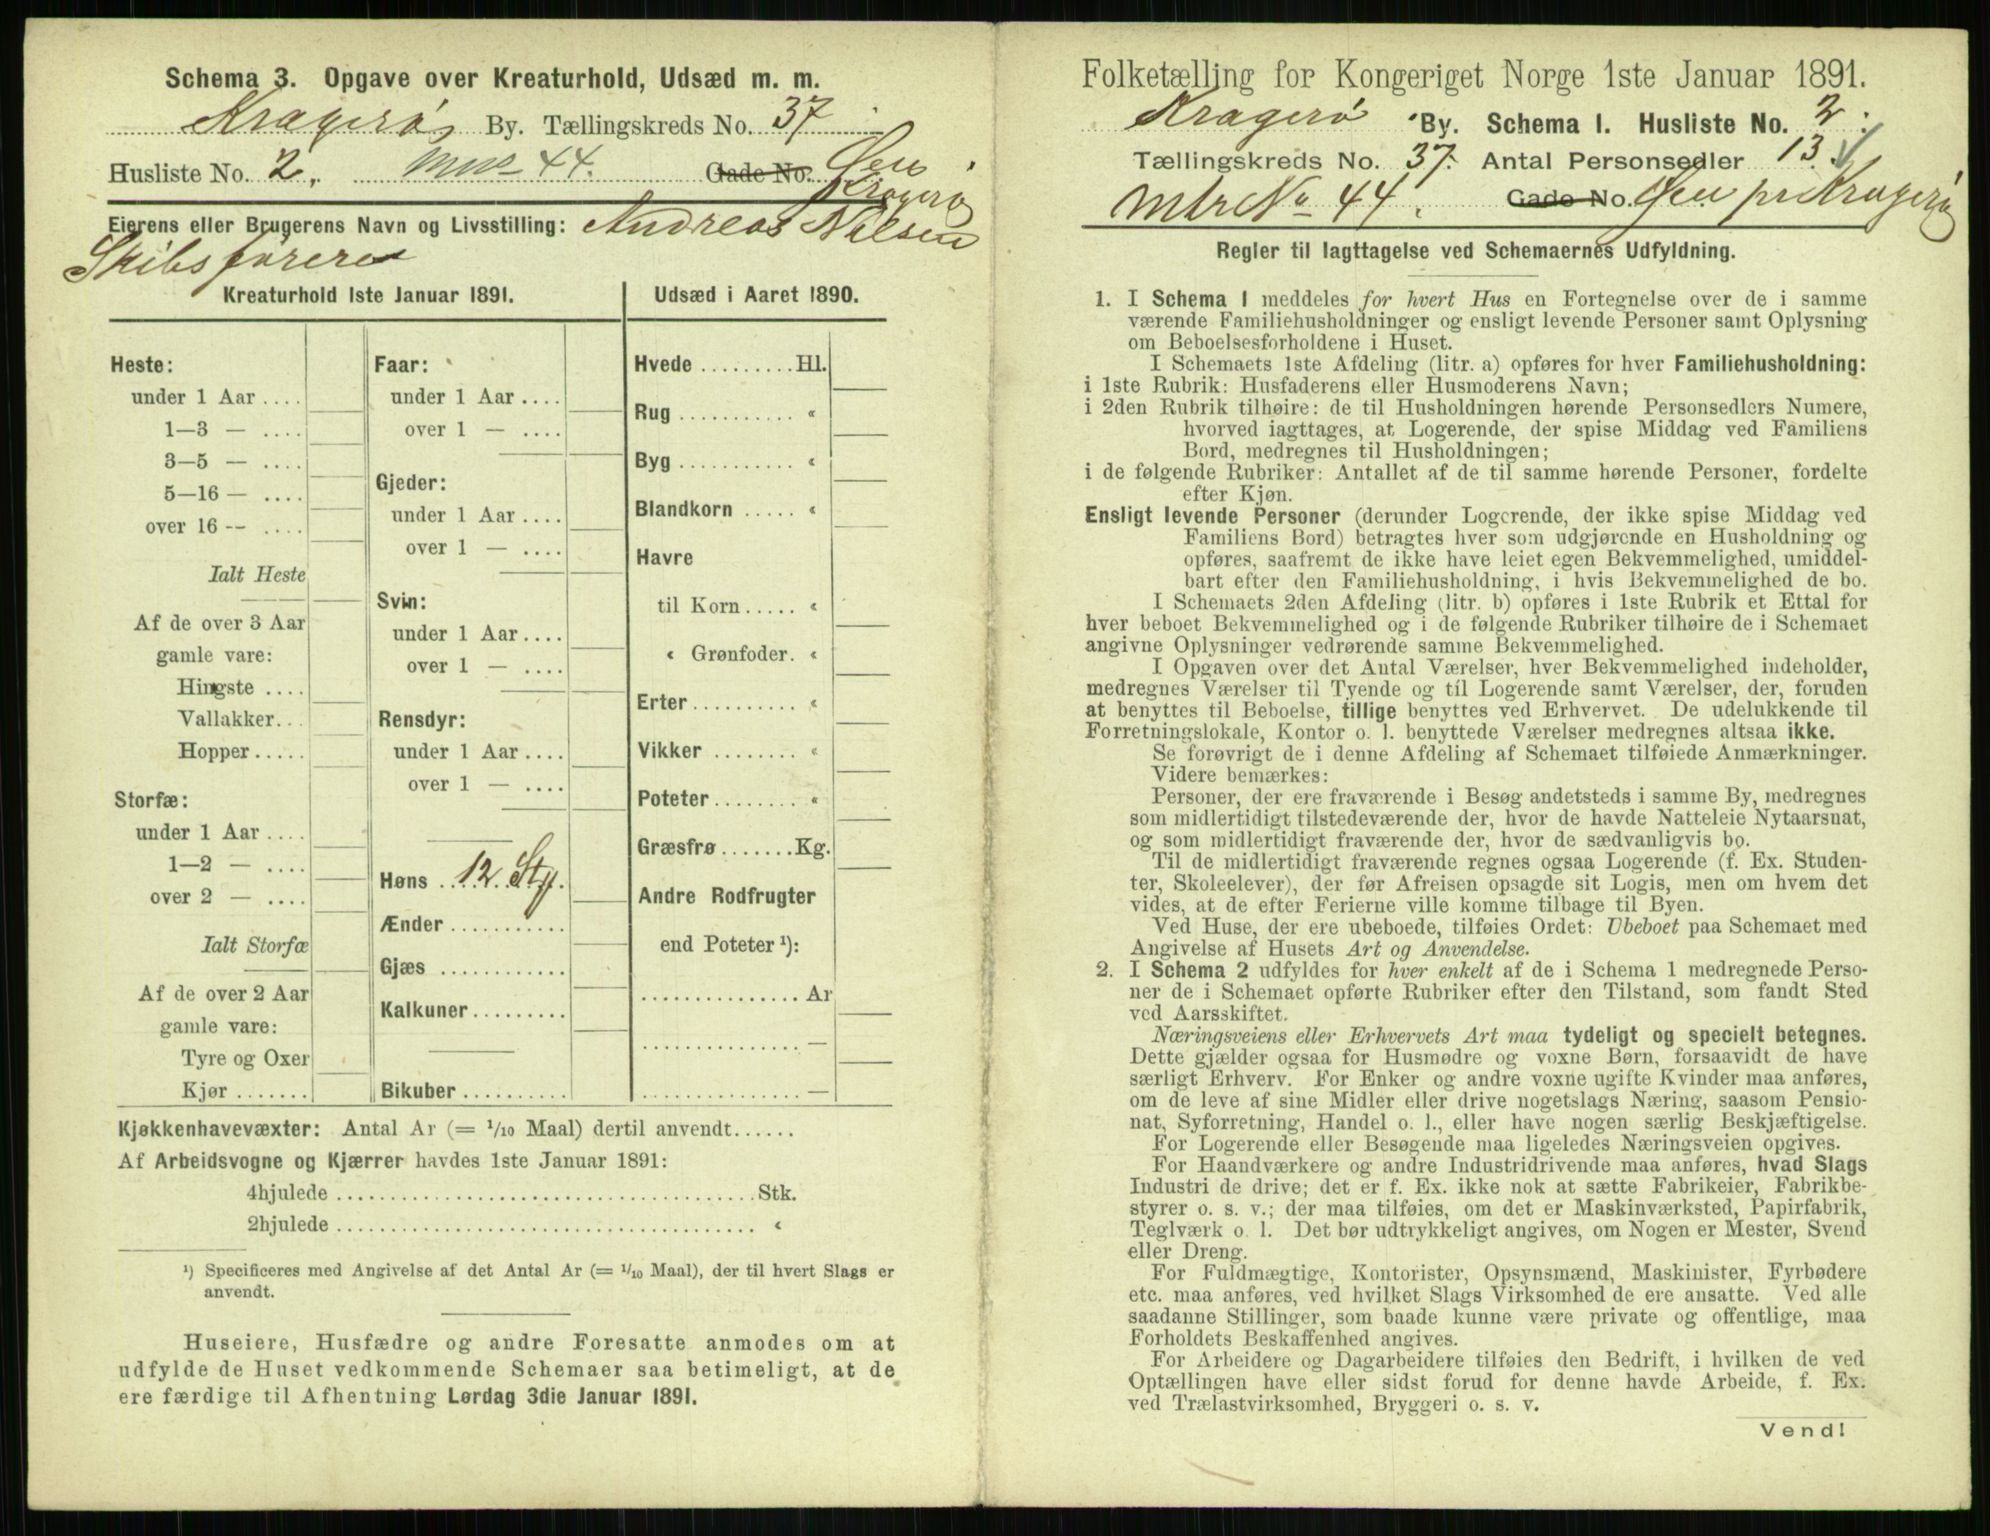 Schema 3. Opgave over Kreaturhold, Udsæd m. m.
Kragerø By. Tællingskreds No. 37
Husliste No. 2, 44. Gade No. Øen
Kragerø
Eierens eller Brugerens Navn og Livsstilling: Andreas Nielsen
Skibsfører
Kreaturhold 1ste Januar 1891.
Heste:
under 1 Aar ....
1—3 — ....
3—5 — ....
5—16 — ....
over 16 — ....
Ialt Heste
Af de over 3 Aar
gamle vare:
Hingste ....
Vallakker...
Hopper .....
Storfæ:
under 1 Aar ....
1—2 — ....
over 2 — ....
Ialt Storfæ
Af de over 2 Aar
gamle vare:
Tyre og Oxer
Kjør .......
Faar:
under 1 Aar ....
over 1 — ....
Gjeder:
under 1 Aar ....
over 1 — ....
Svin:
under 1 Aar ....
over 1 — ....
Rensdyr:
under 1 Aar ....
over 1 — ....
Høns .. 12 Sty.
Ænder ...........
Gjæs ............
Kalkuner.........
Bikuber ..........
Udsæd i Aaret 1890.
Hvede .........Hl.
Rug ........... «
Byg ........... «
Blandkorn ..... «
Havre
til Korn..... «
« Grønfoder. «
Erter.......... «
Vikker ........ «
Poteter........ «
Græsfrø.......Kg.
Andre Rodfrugter
end Poteter ¹):
............... Ar
............... —
............... —
Kjøkkenhavevæxter: Antal Ar (= 1/10 Maal) dertil anvendt......
Af Arbeidsvogne og Kjærrer havdes 1ste Januar 1891:
4hjulede ......................................Stk.
2hjulede ...................................... «
¹) Specificeres med Angivelse af det Antal Ar (= 1/10 Maal), der til hvert Slags er
anvendt.
Huseiere, Husfædre og andre Foresatte anmodes om at
udfylde de Huset vedkommende Schemaer saa betimeligt, at de
ere færdige til Afhentning Lørdag 3die Januar 1891.
Folketælling for Kongeriget Norge 1ste Januar 1891.
Kragerø By. Schema I. Husliste No. 2.
Tællingskreds No. 37. Antal Personsedler 13
Mtr No 44. Gade No. Øen pr Kragerø
Regler til Iagttagelse ved Schemaernes Udfyldning.
1. I Schema I meddeles for hvert Hus en Fortegnelse over de i samme
værende Familiehusholdninger og ensligt levende Personer samt Oplysning
om Beboelsesforholdene i Huset.
I Schemaets 1ste Afdeling (litr. a) opføres for hver Familiehusholdning:
i 1ste Rubrik: Husfaderens eller Husmoderens Navn;
i 2den Rubrik tilhøire: de til Husholdningen hørende Personsedlers Numere,
hvorved iagttages, at Logerende, der spise Middag ved Familiens
Bord, medregnes til Husholdningen;
i de følgende Rubriker: Antallet af de til samme hørende Personer, fordelte
efter Kjøn.
Ensligt levende Personer (derunder Logerende, der ikke spise Middag ved
Familiens Bord) betragtes hver som udgjørende en Husholdning og
opføres, saafremt de ikke have leiet egen Bekvemmelighed, umiddel-
bart efter den Familiehusholdning, i hvis Bekvemmelighed de bo.
I Schemaets 2den Afdeling (litr. b) opføres i 1ste Rubrik et Ettal for
hver beboet Bekvemmelighed og i de følgende Rubriker tilhøire de i Schemaet
angivne Oplysninger vedrørende samme Bekvemmelighed.
I Opgaven over det Antal Værelser, hver Bekvemmelighed indeholder,
medregnes Værelser til Tyende og til Logerende samt Værelser, der, foruden
at benyttes til Beboelse, tillige benyttes ved Erhvervet. De udelukkende til
Forretningslokale, Kontor o. l. benyttede Værelser medregnes altsaa ikke.
Se forøvrigt de i denne Afdeling af Schemaet tilføiede Anmærkninger.
Videre bemærkes:
Personer, der ere fraværende i Besøg andetsteds i samme By, medregnes
som midlertidigt tilstedeværende der, hvor de havde Natteleie Nytaarsnat,
og som midlertidigt fraværende der, hvor de sædvanligvis bo.
Til de midlertidigt fraværende regnes ogsaa Logerende (f. Ex. Studen-
ter, Skoleelever), der før Afreisen opsagde sit Logis, men om hvem det
vides, at de efter Ferierne ville komme tilbage til Byen.
Ved Huse, der ere ubeboede, tilføies Ordet: Ubeboet paa Schemaet med
Angivelse af Husets Art og Anvendelse.
2. I Schema 2 udfyldes for hver enkelt af de i Schema 1 medregnede Perso-
ner de i Schemaet opførte Rubriker efter den Tilstand, som fandt Sted
ved Aarsskiftet.
Næringsveiens eller Erhvervets Art maa tydeligt og specielt betegnes.
Dette gjælder ogsaa for Husmødre og voxne Børn, forsaavidt de have
særligt Erhverv. For Enker og andre voxne ugifte Kvinder maa anføres,
om de leve af sine Midler eller drive nogetslags Næring, saasom Pensio-
nat, Syforretning, Handel o. l., eller have nogen særlig Beskjæftigelse.
For Logerende eller Besøgende maa ligeledes Næringsveien opgives.
For Haandværkere og andre Industridrivende maa anføres, hvad Slags
Industri de drive; det er f. Ex. ikke nok at sætte Fabrikeier, Fabrikbe-
styrer o. s. v.; der maa tilføies, om det er Maskinværksted, Papirfabrik,
Teglværk o. l. Det bør udtrykkeligt angives, om Nogen er Mester, Svend
eller Dreng.
For Fuldmægtige, Kontorister, Opsynsmænd, Maskinister, Fyrbødere
etc. maa anføres, ved hvilket Slags Virksomhed de ere ansatte. Ved alle
saadanne Stillinger, som baade kunne være private og offentlige, maa
Forholdets Beskaffenhed angives.
For Arbeidere og Dagarbeidere tilføies den Bedrift, i hvilken de ved
Optællingen have eller sidst forud for denne havde Arbeide, f. Ex.
ved Trælastvirksomhed, Bryggeri o. s. v.
Vend!